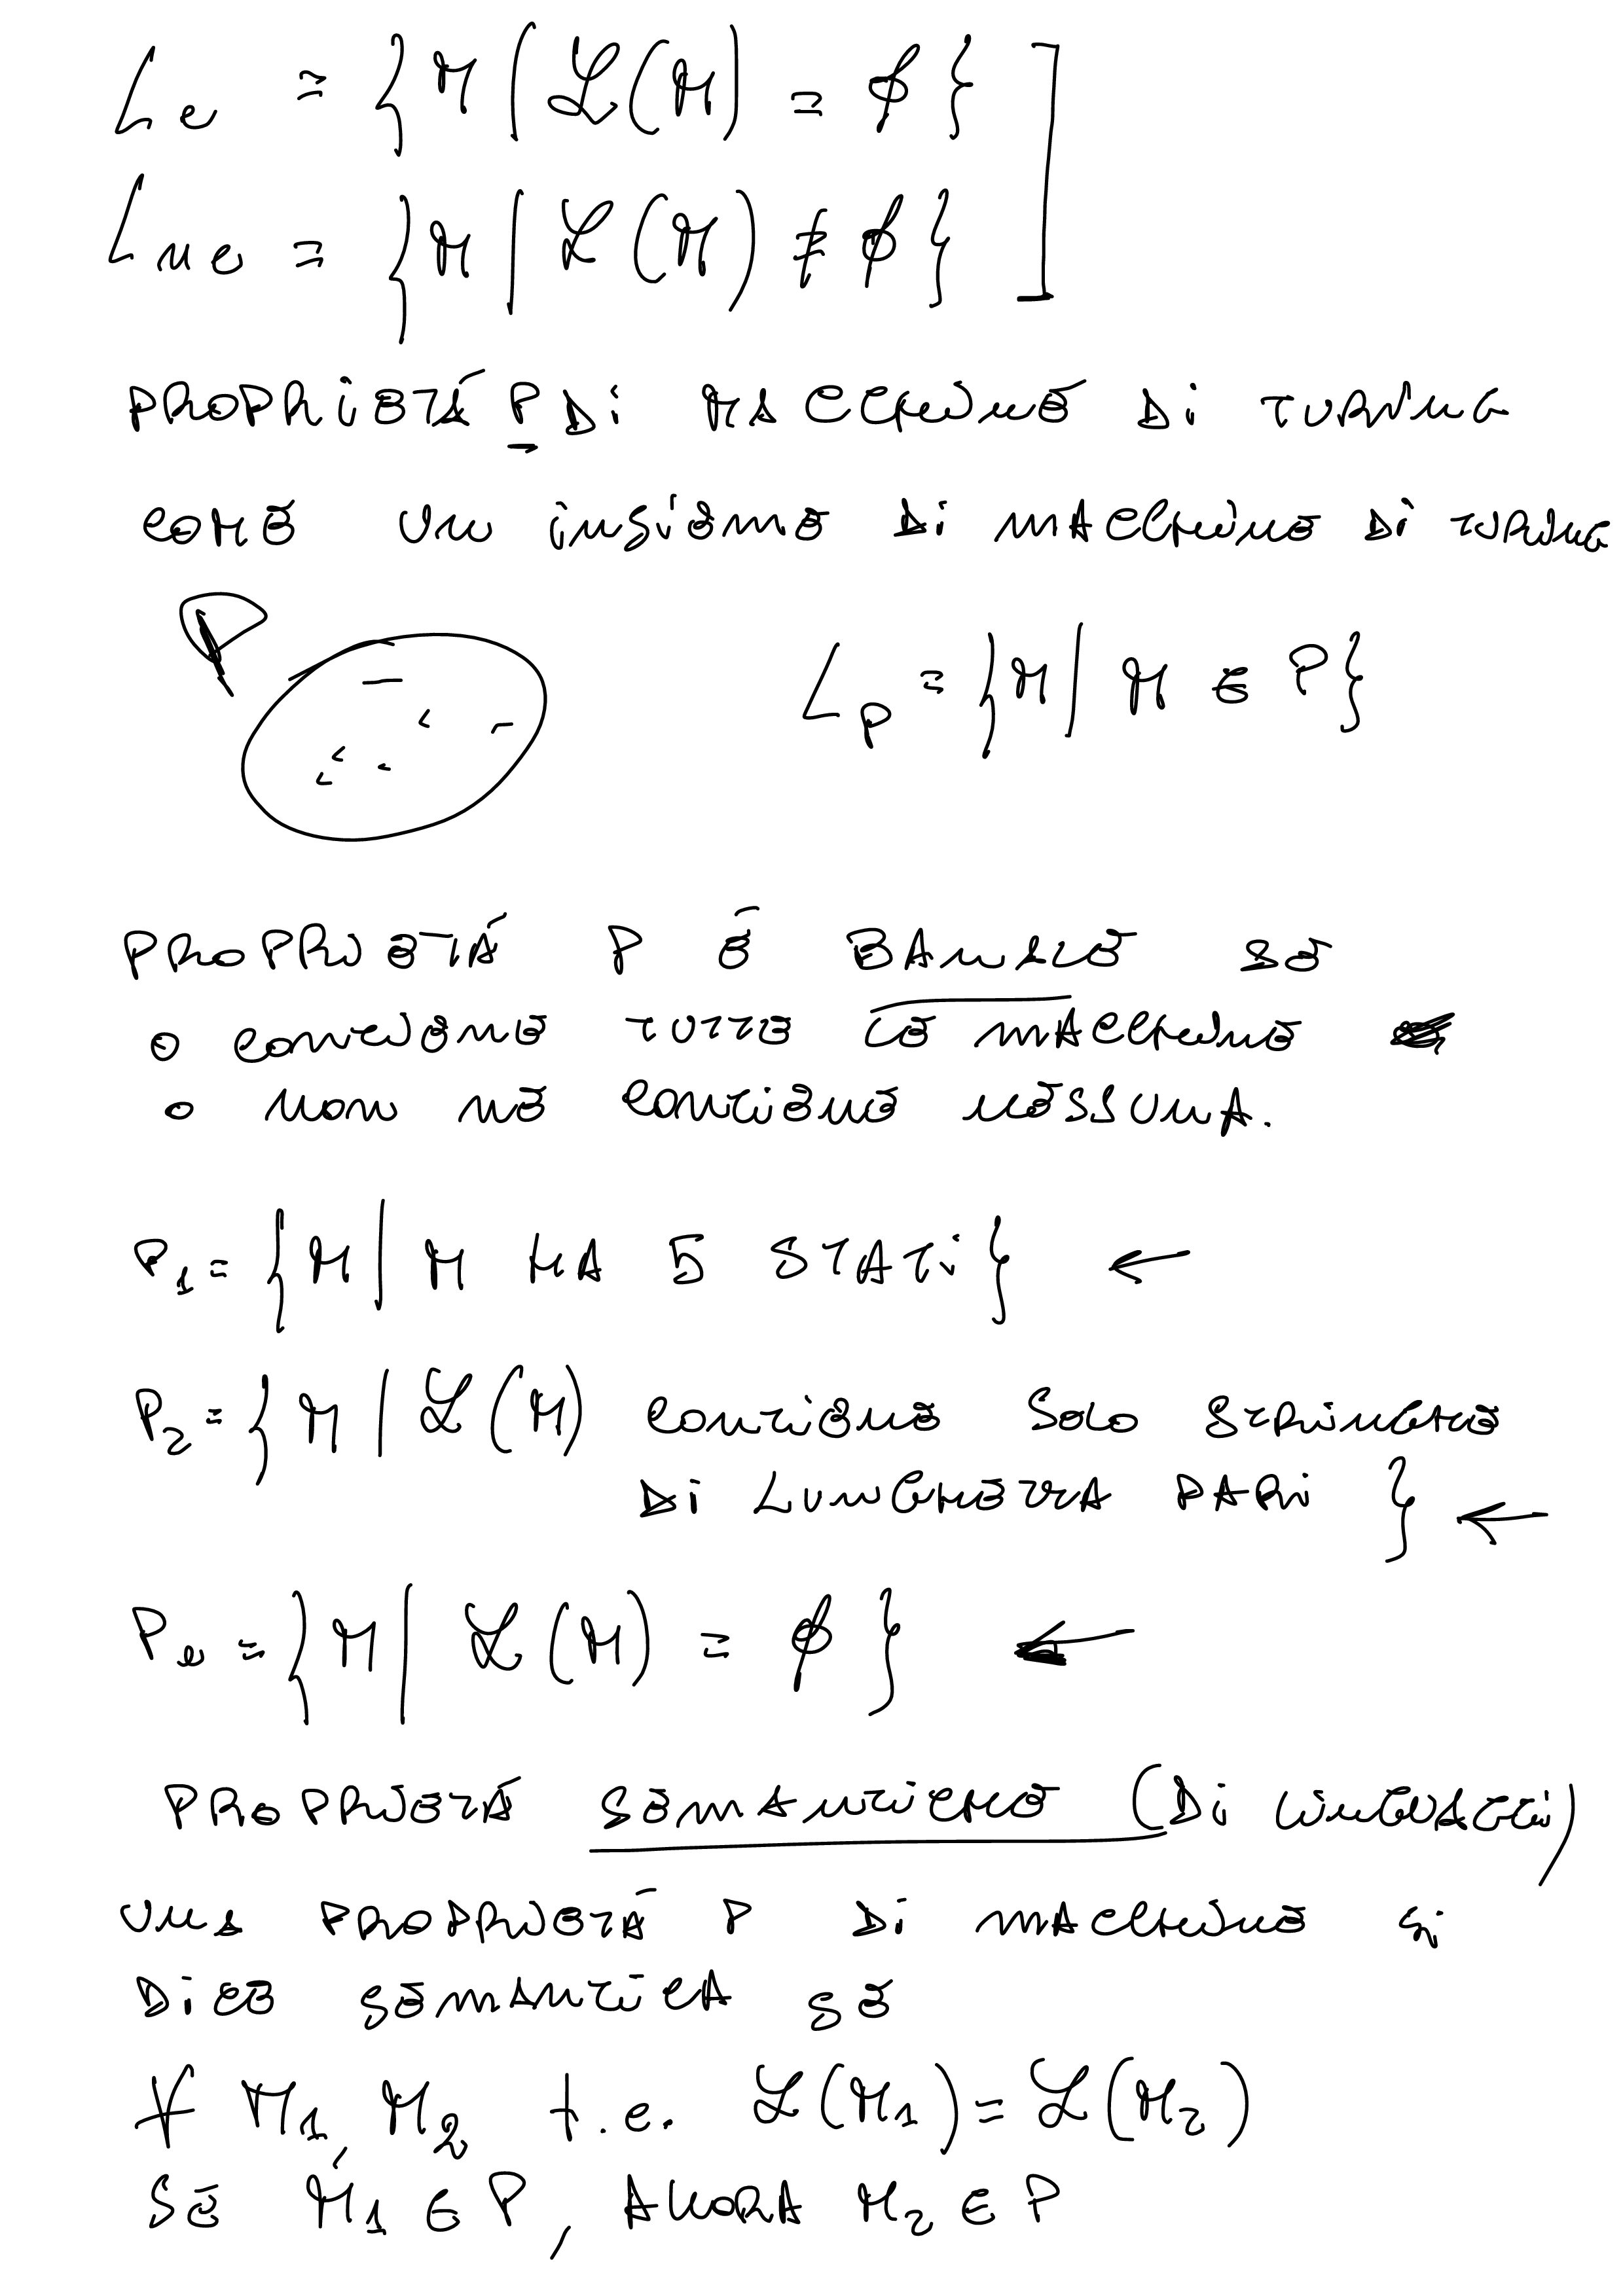 L_e = {M | ℒ(M) = ∅}
L_ne = {M | ℒ(M) ≠ ∅}
PROPRIETÁ P DI MACCHINE DI TURING
COME UN INSIEME DI MACCHINE DI TURING
P
L_P = {M | M ∈ P}
PROPRIETÁ P É BANALE SE
O CONTIENE TUTTE LE MACCHINE
O NON NE CONTIENE NESSUNA.
P_1 = {M | M HA 5 STATI} ←
P_2 = {M | ℒ(M) CONTIENE SOLO STRINGHE
DI LUNGHEZZA PARI } ←
P_e = {M | ℒ(M) = ∅ } ←
PROPRIETÁ SEMANTICHE (DI LINGUAGGI)
UNA PROPRIETÁ P DI MACCHINE SI
DICE SEMANTICA SE
∀ M_1, M_2 t.c. ℒ(M_1) = ℒ(M_2)
SE M_1 ∈ P, ALLORA M_2 ∈ P